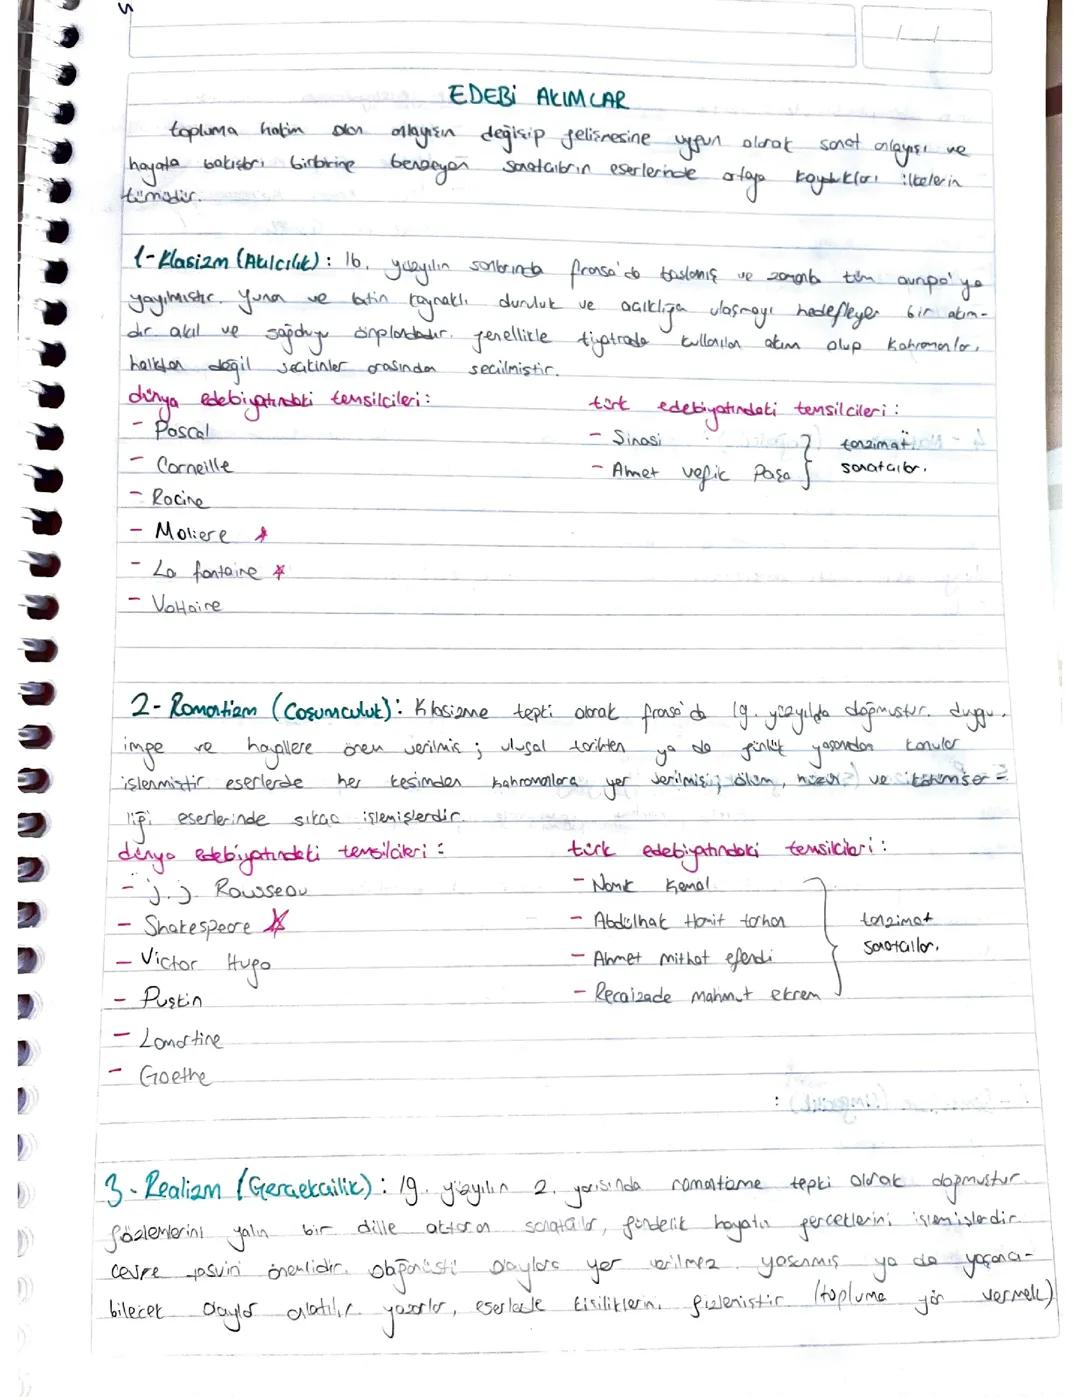 EDEBİ AKIMLAR
topluma hakim olan anlayışın değişip gelişmesine uygun olarak sanat anlayışı ve
hayata bakışları birbirine benzeyen sanatcıların eserlerinde ortaya koydukları ilkelerin
tümüdür.
1-Klasizm (Akılcılık): 16. yüzyılın sonlarında fransa'da başlamış ve zamanla tüm avrupa'ya
yayılmıştır. Yunan ve latin kaynaklı duruluk ve açıklığa ulaşmayı hedefleyen bir akım-
dır. akıl ve sağduyu ön plandadır. genellikle tiyatroda kullanılan akım olup kahramanlar,
halktan değil seçkinler arasından seçilmiştir.
dünya edebiyatındaki temsilcileri: türk edebiyatındaki temsilcileri:
- Pascal - Şinasi tanzimat
- Corneille - Ahmet vefik Paşa sanatcıları.
- Racine
- Moliere
- La fontaine
- Voltaire
2- Romantizm (Coşumculuk): Klasizme tepki olarak fransa'da 19. yüzyılda doğmuştur. duygu,
imge ve hayallere önem verilmiş; ulusal tarihten ya da günlük yaşamdan konular
işlenmiştir. eserlerde her kesimden kahramanlara yer verilmiş; ölüm, hüzün ve karamser-
liği eserlerinde sıkça işlemişlerdir.
dünya edebiyatındaki temsilcileri: türk edebiyatındaki temsilcileri:
- j.j. Rousseau - Namık Kemal
- Shakespeare - Abdülhak Hamit tarhan tanzimat
- Victor Hugo - Ahmet mithat efendi sanatcıları.
- Puşkin - Recaizade mahmut ekrem
- Lamartine
- Goethe
3- Realizm (Gerçekçilik): 19. yüzyılın 2. yarısında romantizme tepki olarak doğmuştur.
gözlemlerini yalın bir dille aktaran sanatcılar, gündelik hayatın gerceklerini işlemişlerdir.
çevre tasviri önemlidir. olağanüstü olaylara yer verilmez. yaşanmış ya da yaşana-
bilecek olaylar anlatılır. yazarlar, eserlerde kişiliklerini gizlemiştir. (topluma yön vermek)